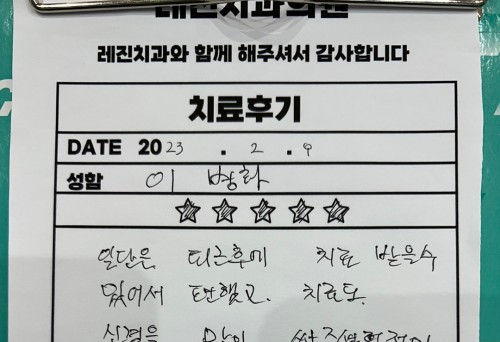 레진치과의원
레진치과와 함께 해주셔서 감사합니다
치료후기
DATE 2023 . 2 . 9
성함 이 병화
일단은 퇴근후에 치료 받을수
있어서 편했고. 치료도.
신경을 많이